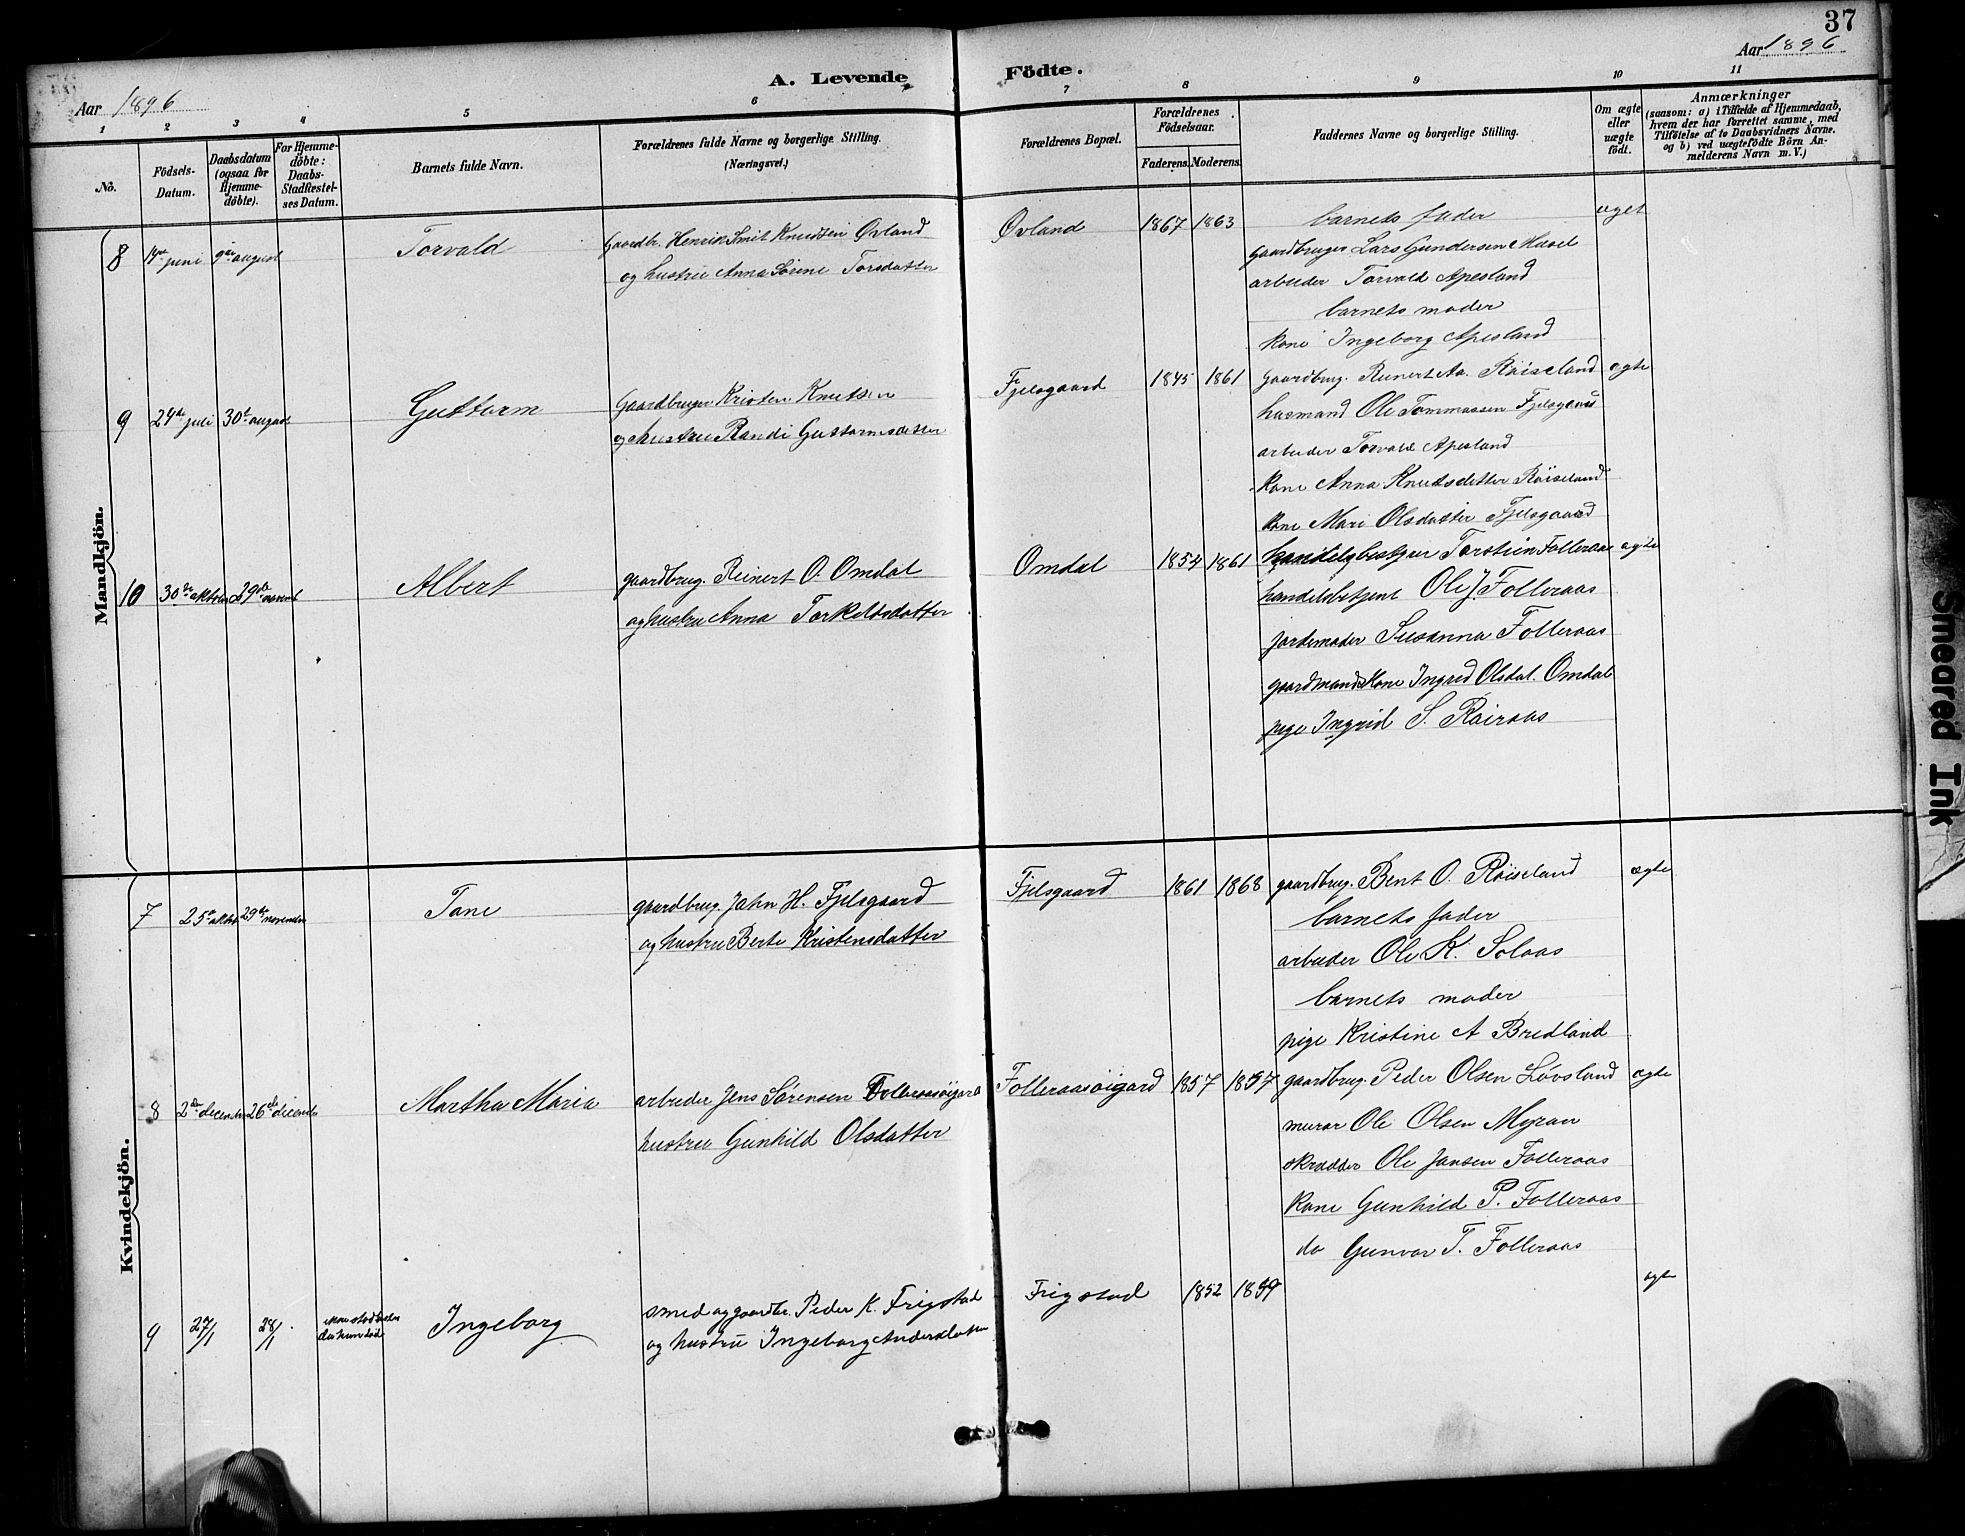 37
Aar 1896
Aar 1896
A. Levende Födte.
1 2 3 4 5 6 7 8 9 10 11
No.
Födsels-Datum.
Daabsdatum (ogsaa for Hjemme-döbte).
For Hjemme-döbte: Daabs-Stadfæstel-ses Datum.
Barnets fulde Navn.
Forældrenes fulde Navne og borgerlige Stilling.
(Næringsvei.)
Forældrenes Bopæl.
Forældrenes Födselsaar.
Faderens. Moderens.
Faddernes Navne og borgerlige Stilling.
Om ægte eller uægte födt.
Anmærkninger
(saasom: a) i Tilfælde af Hjemmedaab, hvem der har forrettet samme, med Tilföielse af to Daabsvidners Navne. og b) ved uægtefödte Börn An-melderens Navn m. V.)
Mandkjön.
8 juni 9de august Torvald Gaardbr. Henrik Smit Knudsen Øvland Øvland 1867 1863 barnets fader
og hustru Anna Sørine Torsdatter
gaardbruger Lars Gundersen
arbeider Torvald Apesland
barnets moder
kone Ingeborg Apesland
9 24de juli 30te august Guttorm Gaardbruger Kristen Knutsen Fjelsgaard 1845 1861 gaardbrug. Reinert Aa. Röiseland ægte
og hustru Randi Guttormsdatter
husmand Ole Tommassen Fjelsgaard
arbeider Torvald Apesland
kone Anna Knutsdetter Röiseland
kone Mari Olsdatter Fjelsgaard
10 30te oktober 29de novemb Albert gaardbrug. Reinert O. Omdal Omdal 1854 1861 handelsbestyrer Torstein Folleraas ægte
og hustru Anna Torkeldsdatter
handelsbetjent Ole J. Folleraas
jordemoder Susanna Folleraas
gaardmandskone Ingred Olsdat. Omdal
pige Ingrid S. Röiraas
Kvindekjön.
7 25de oktbr 29de november Tone gaardbrug. John H. Fjelsgaard Fjelsgaard 1861 1868 gaardbrug. Bent O. Röiseland ægte
og hustru Berte Kristensdatter
barnets fader
arbeider Ole K. Solaas
barnets moder
pige Kristine A Bredland
8 2den december 26de december Martha Maria arbeider Jens Sørensen Folleraasöigard Folleraasöigard 1857 1857 gaardbrug. Peder Olsen Lövsland ægte
hustru Gunhild Olsdatter
murar Ole Olsen Myran
skrædder Ole Jansen Folleraas
kone Gunhild P. Folleraas
do Gunvor T. Folleraas
9 27/1 28/1 Ingeborg smed og gaardbr. Peder K. Frigstad Frigstad 1852 1859 ægte
og hustru Ingeborg Andersdatter
Smeared Ink